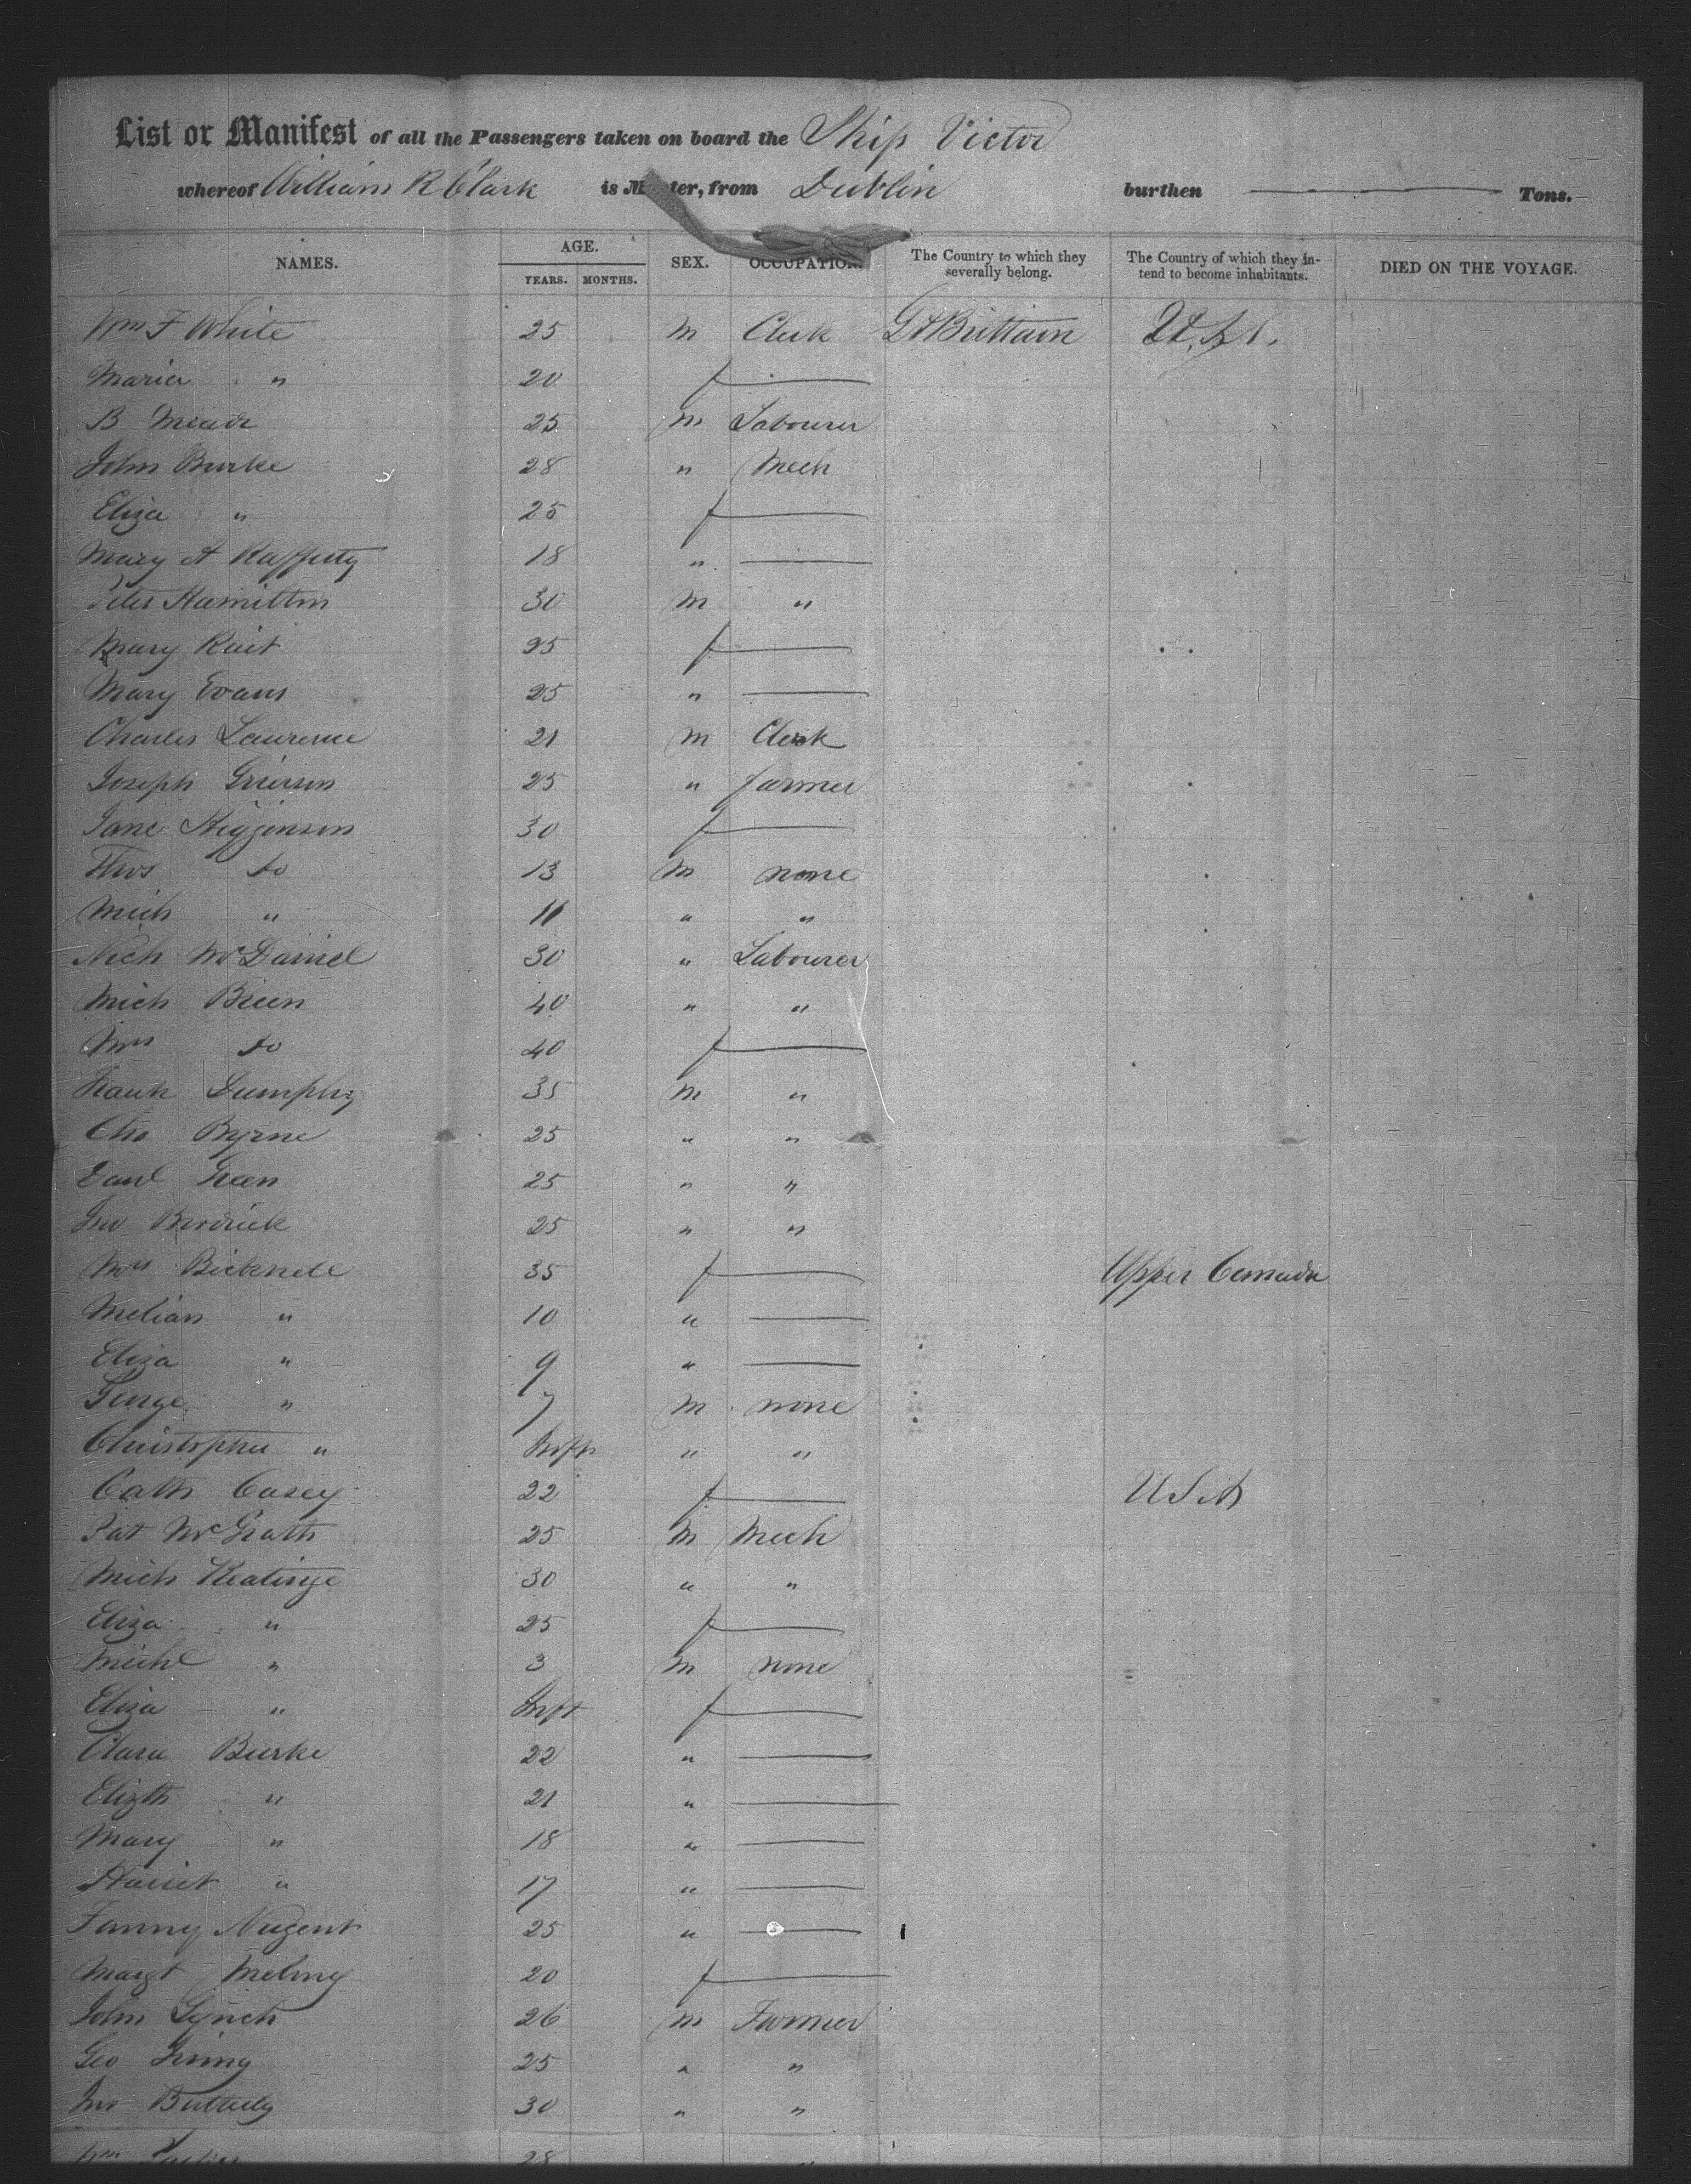 List or Manifest of all the Passengers taken on board the Ship Victor
whereof William R Clark is Master, from Dublin burthen Tons.
NAMES. AGE. YEARS. MONTHS. SEX. OCCUPATION. The Country to which they severally belong. The Country of which they intend to become inhabitants. DIED ON THE VOYAGE.
Wm F White 25 M Clerk Gt Brittain
Maria " 20 f
B Meade 25 M Labourer
John Burke 28 " Mech
Eliza " 25 f
Mary A Rafferty 18 "
Peter Hamilton 30 M "
Mary Rait 25 f
Mary Evans 25 "
Charles Laurence 21 M Clerk
Joseph Grierson 25 " farmer
Jane Higginson 30 f
Thos do 13 M none
Mich " 11 " "
Nich McDaniel 30 " Labourer
Mich Breen 40 " "
Mrs do 40 f
Frank Dumphy 35 M "
Chs Byrne 25 " "
Danl Green 25 " "
Jno Brodrick 25 " "
Mrs Bicknell 35 f Upper Canada
Melian " 10 "
Eliza " 9 "
George " 7 M none
Christopher " Inft " "
Cath Casey 22 f USA
Pat McGrath 25 M Mech
Mich Keatinge 30 " "
Eliza " 25 f
Michl " 3 M none
Eliza " Inft f
Clara Burke 22 "
Elizth " 21 "
Mary " 18 "
Harriet " 17 "
Fanny Nugent 25 "
Margt 20 f
John Lynch 26 M Farmer
Geo 25 " "
Jno Butterly 30 " "
Wm 28 "